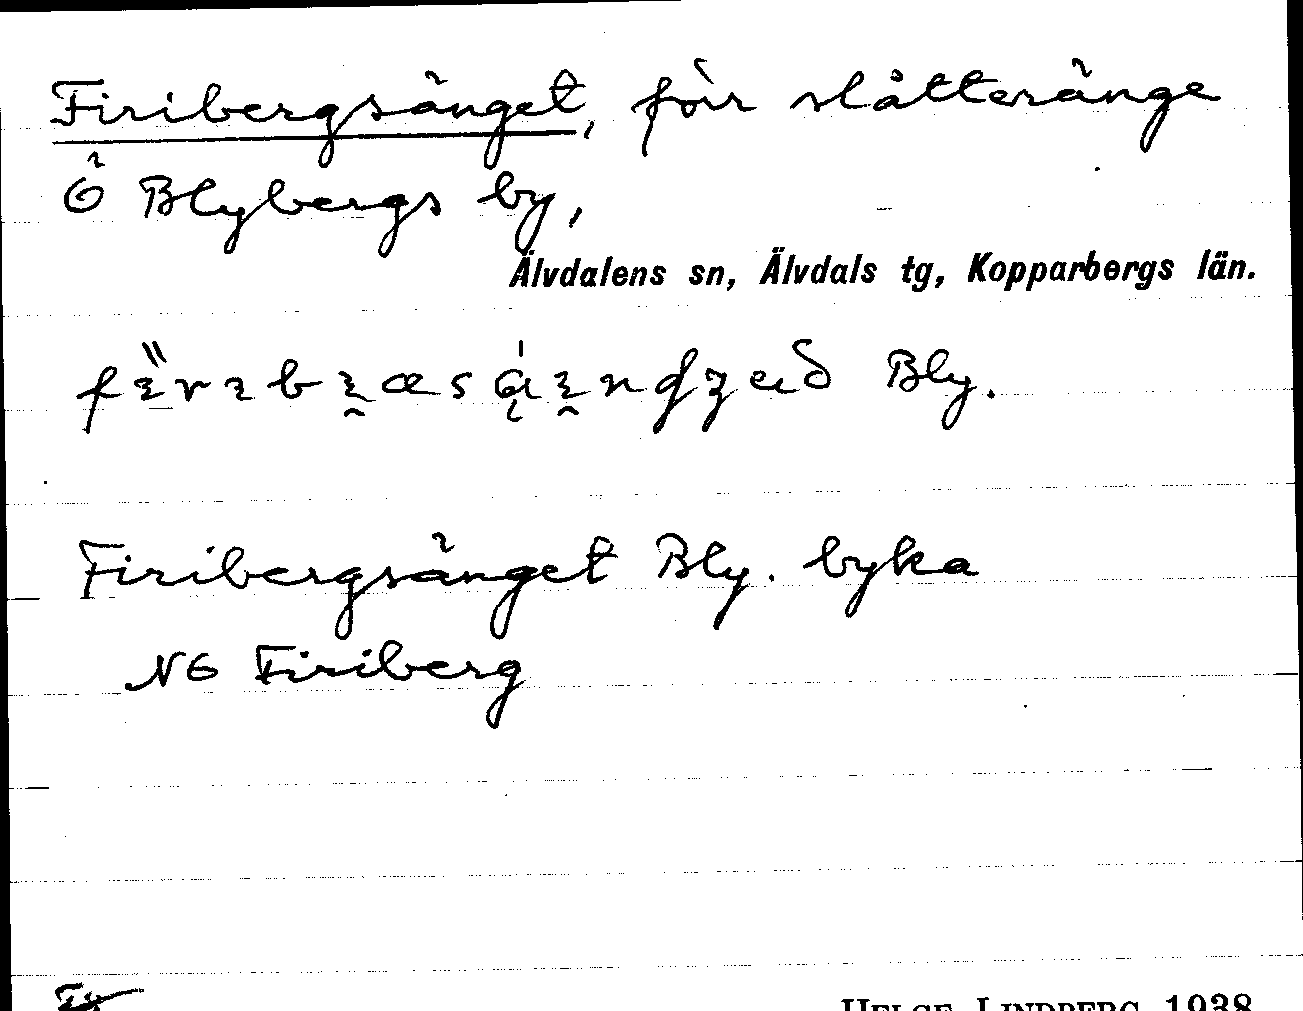 Firibergsänget, förr slåtteränge
Ö Blybergs by,
Älvdalens sn, Älvdals tg, Kopparbergs län.
Bly.
Firibergsänget Bly. byka
NO Firiberg
HELGE LINDBERG 1938